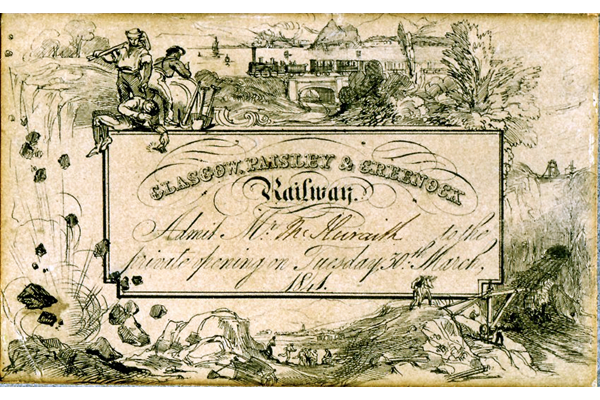 GLASGOW, PAISLEY & GREENOCK
Railway.
Admit Mr. to the
private opening on Tuesday, 30th March,
1841.